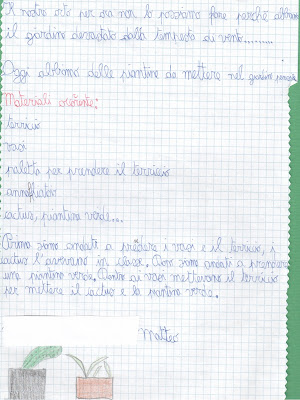 Il nostro orto per ora non lo possiamo fare perché abbiamo
il giardino devastato dalla tempesta di vento.........
Oggi abbiamo delle piantine da mettere nel giardino pensile
Materiali occorrente:
terriccio
vasi
paletta per prendere il terriccio
annaffiatoio
cactus, piantine verde...
Prima siamo andati a prendere i vasi e il terriccio, i
cactus l'avevamo in classe. Poi siamo andati a prendere
una piantina verde. Dentro ai vasi mettevamo il terriccio
per mettere il cactus e la piantina verde.
Matteo